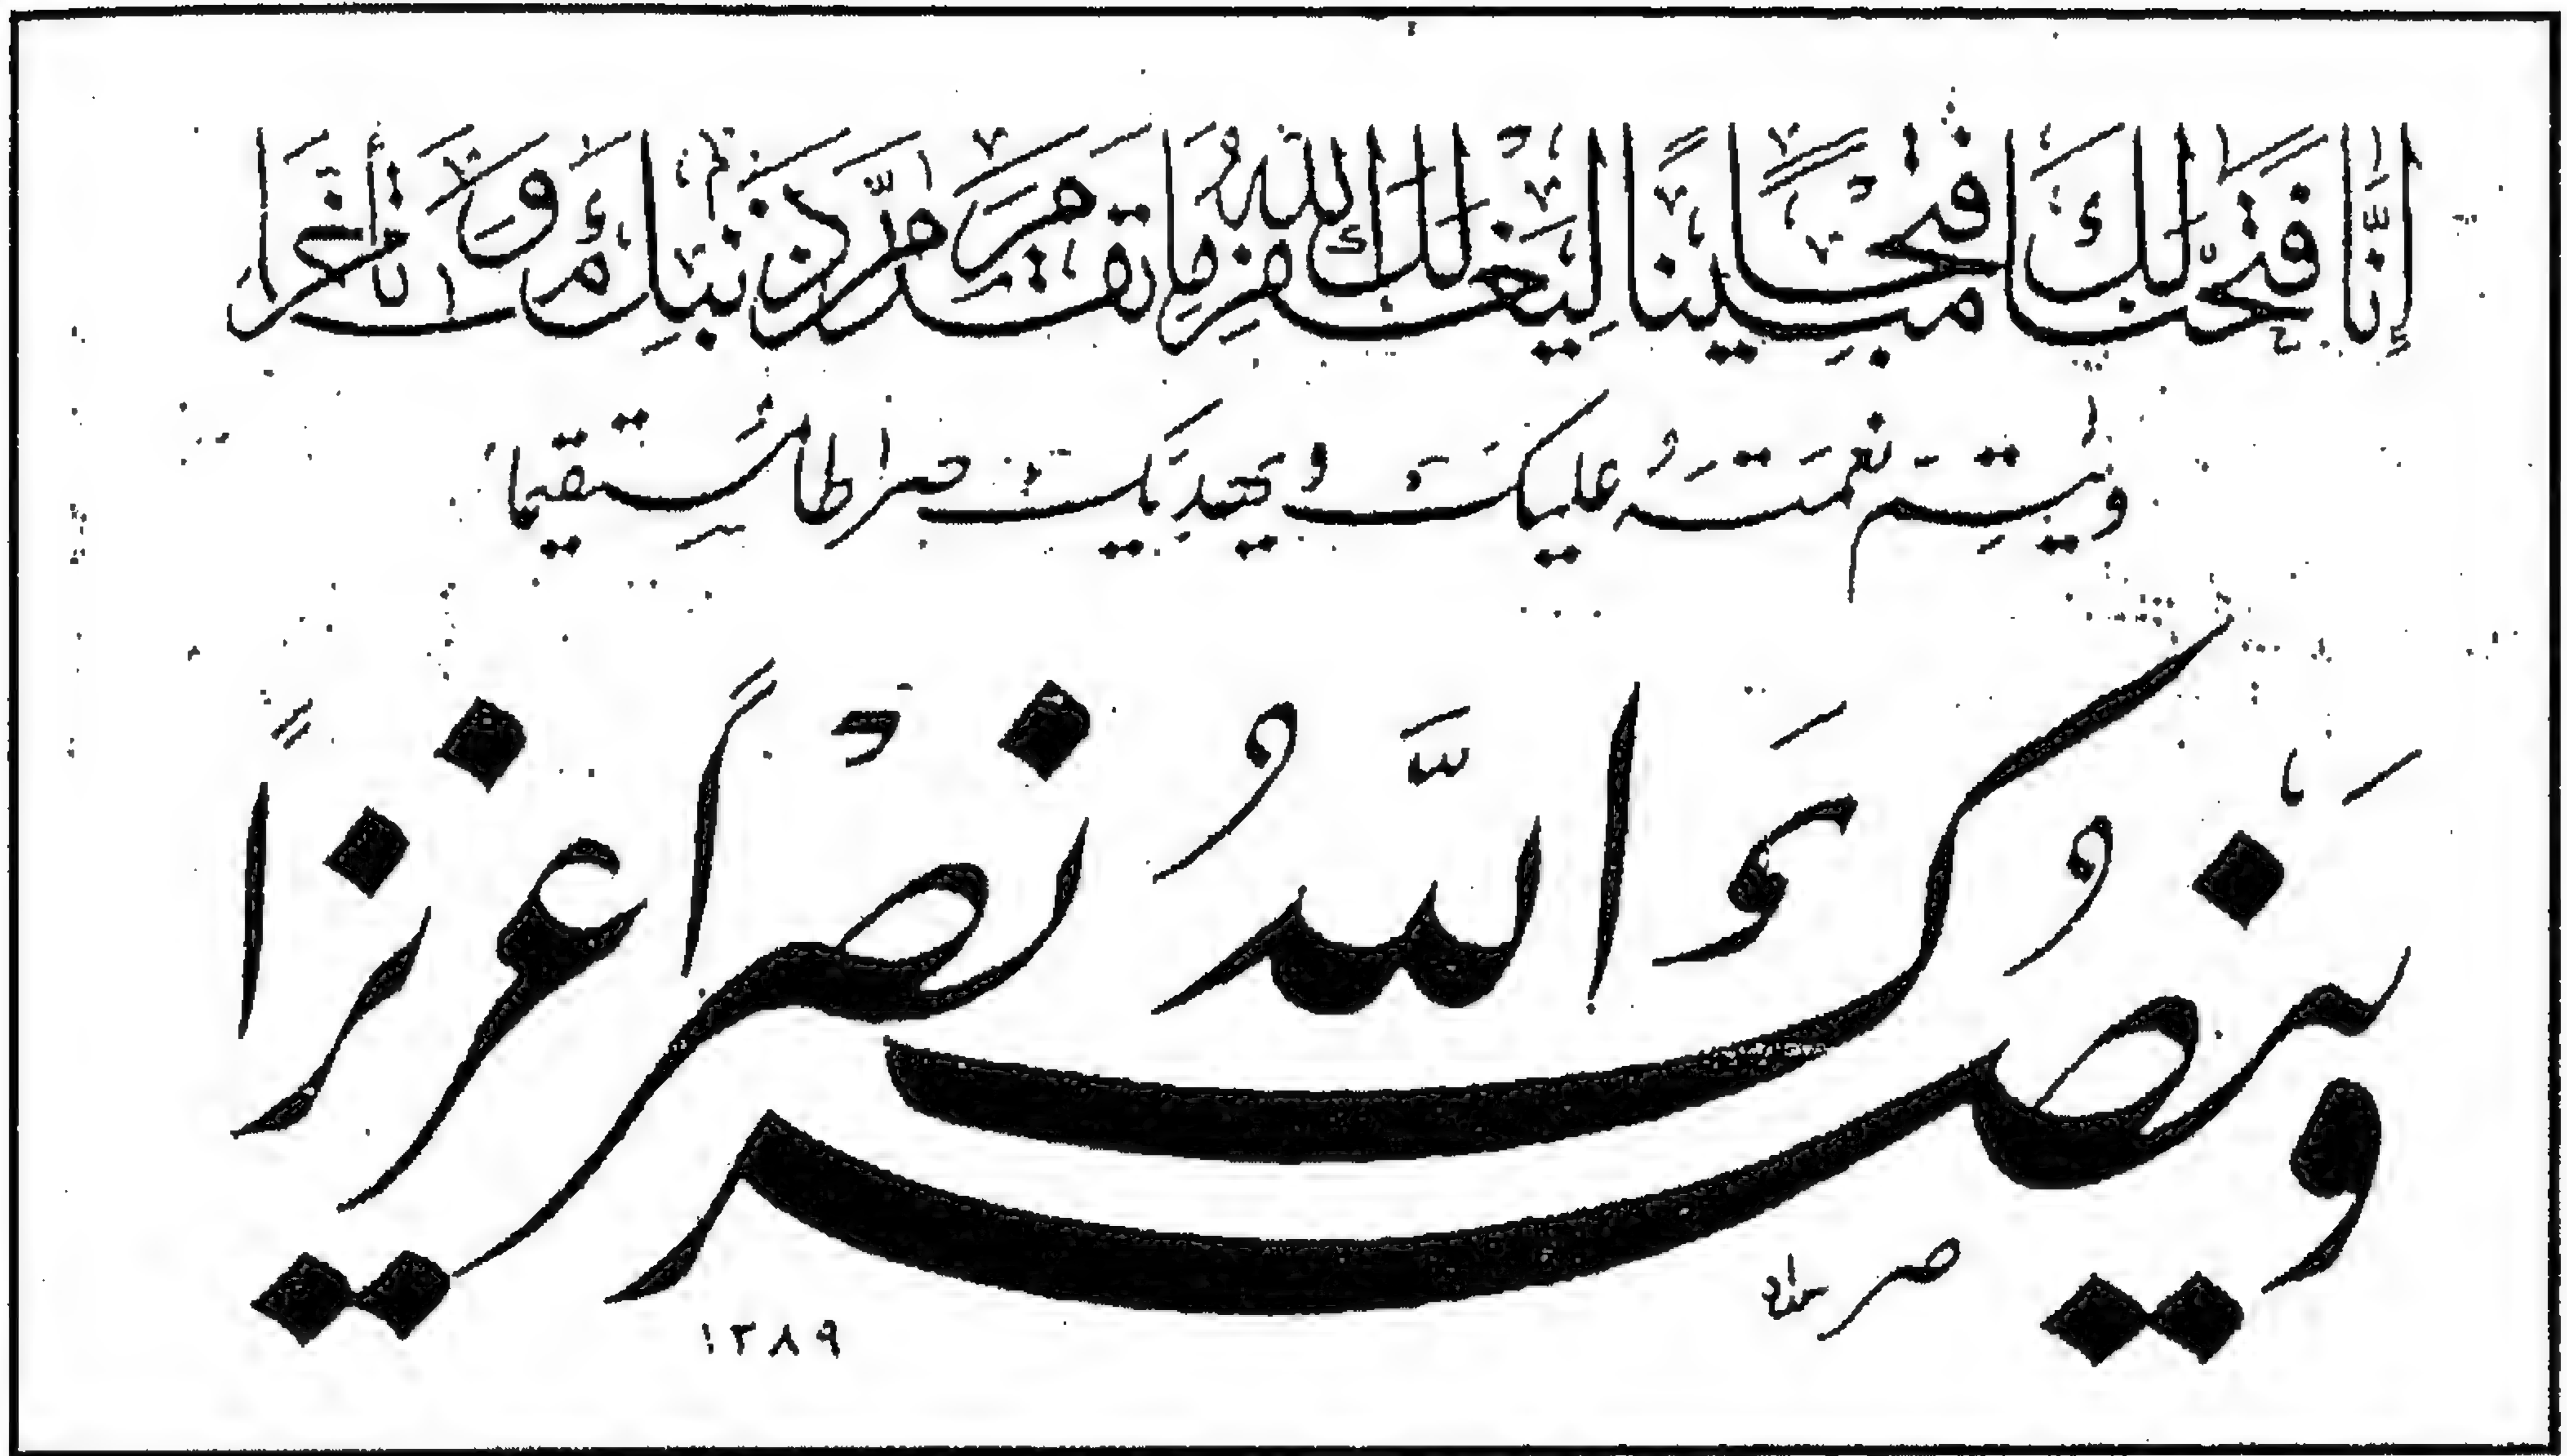 إِنَّا فَتَحْنَا لَكَ فَتْحًا مُبِينًا لِيَغْفِرَ لَكَ اللَّهُ مَا تَقَدَّمَ مِنْ ذَنْبِكَ وَمَا تَأَخَّرَ
وَيُتِمَّ نِعْمَتَهُ عَلَيْكَ وَيَهْدِيَكَ صِرَاطًا مُسْتَقِيمًا
وَيَنْصُرَكَ اللَّهُ نَصْرًا عَزِيزًا
١٣٨٩